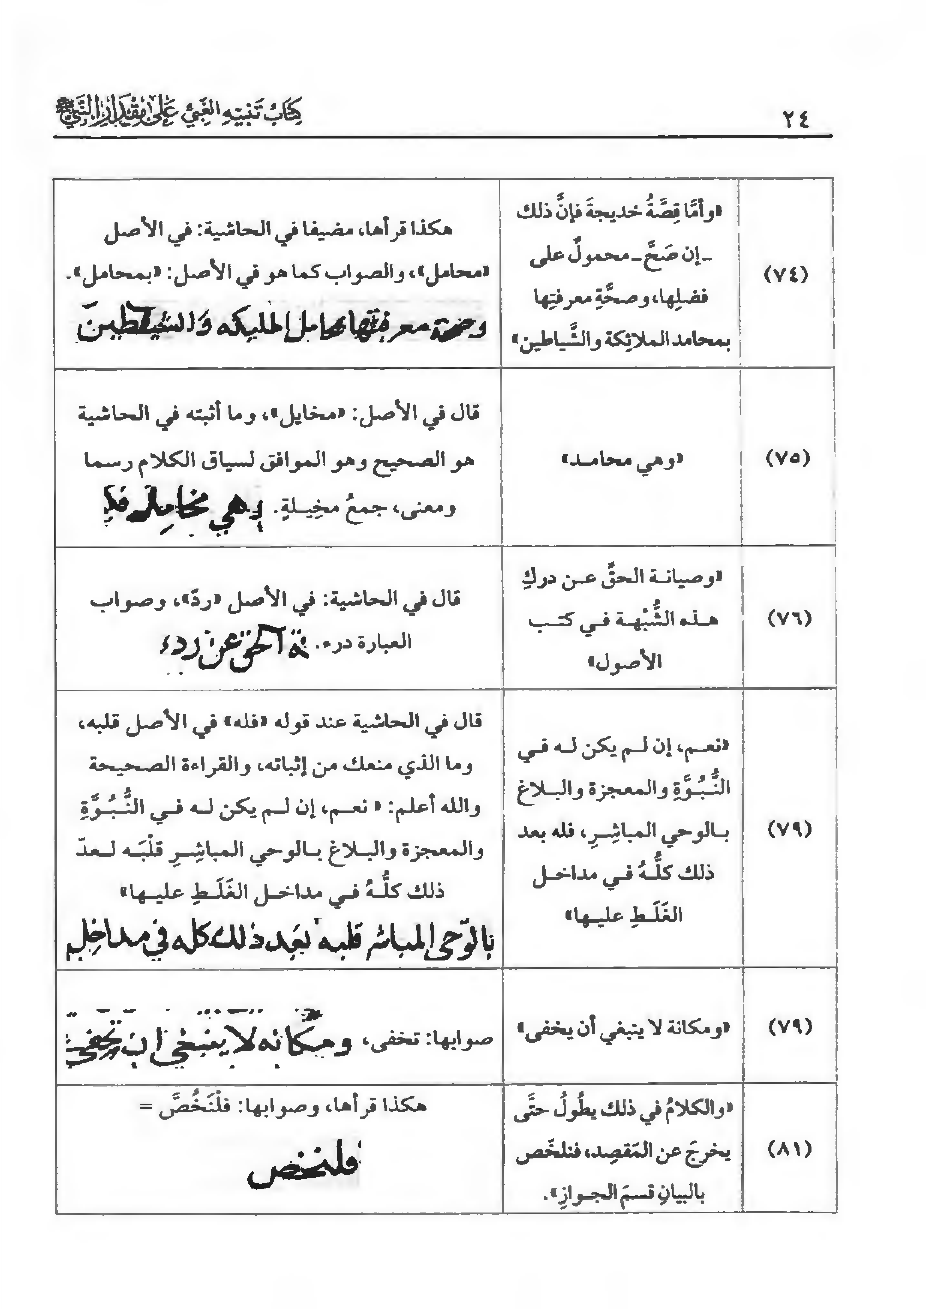 ٢٤
كِتَابُ تَنْبِيْهِ الغَبِيِّ عَلَى مِقْدَارِ النَّبِيِّ ﷺ
(٧٤)
«وأمَّا قِصَّةُ خديجةَ فإنَّ ذلك
ـ إن صَحَّ ـ محمولٌ على
فضلِها، وصحَّةِ معرفتِها
بمحامد الملائِكة والشَّياطين»
هكذا قرأها، مضيفا في الحاشية: في الأصل
«محامل»، والصواب كما هو في الأصل: «بمحامل».
وصحة معرفتها بمحامل المليكه والشياطين
(٧٥)
«وهي محامـد»
قال في الأصل: «مخايل»، وما أثبته في الحاشية
هو الصحيح وهو الموافق لسياق الكلام رسما
ومعنى، جمعُ مخِيـلةٍ.
وهي مخامل
(٧٦)
«وصيانـة الحقِّ عـن دركِ
هـذه الشُّبْهـة فـي كتـب
الأصول»
قال في الحاشية: في الأصل «ردّ»، وصواب
العبارة درء.
ة الحق عن ردء
(٧٩)
«نعـم، إن لـم يكن لـه فـي
النُّبُـوَّةِ والمعجزة والبـلاغ
بـالوحي المباشِـرِ، فله بعد
ذلك كلُّـهُ فـي مداخـل
الغَلَـطِ عليـها»
قال في الحاشية عند قوله «فله» في الأصل قلبه،
وما الذي منعك من إثباته، والقراءة الصحيحة
والله أعلم: « نعـم، إن لـم يكن لـه فـي النُّبُـوَّةِ
والمعجزة والبـلاغ بـالوحي المباشِـرِ قلْبَـه لـعدّ
ذلك كلُّـهُ فـي مداخـل الغَلَـطِ عليـها»
بالوحي المباشر قلبه بعد ذلك كله في مداخل
(٧٩)
«ومكانة لا ينبغي أن يخفى»
صوابها: تخفى،
ومكانه لا ينبغي ان تخفى
(٨١)
«والكلامُ في ذلك يطُولُ حتَّى
يخرجَ عن المَقصِد، فنلخّص
بالبيانِ قسمَ الجـوازِ».
هكذا قرأها، وصوابها: فلْنَخُصَّ =
فلنخص